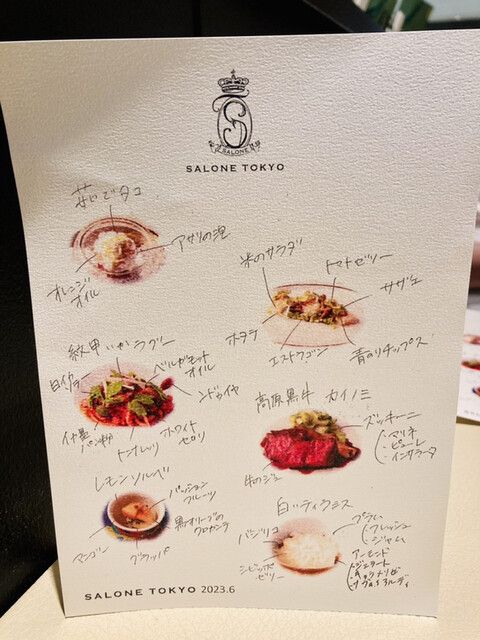 SALONE
SALONE TOKYO
茹でダコ
アサリの泡
オレンジ
オイル
米のサラダ
トマトゼリー
サザエ
ホタテ
エストラゴン
青のりチップス
紋甲いかラグー
ベルガモット
オイル
白イカ
ンドゥイヤ
イカ墨
パン粉
トンナレッリ
ホワイト
セロリ
高原黒牛 カイノミ
ズッキーニ
・マリネ
・ピューレ
・インサラータ
牛のジュ
レモンソルベ
パッション
フルーツ
黒オリーブの
クロカンテ
マンゴー
グラッパ
白いティラミス
バジリコ
プラム
・フレッシュ
・ジャム
シビッボ
ゼリー
アーモンド
・ジェラート
SALONE TOKYO 2023.6